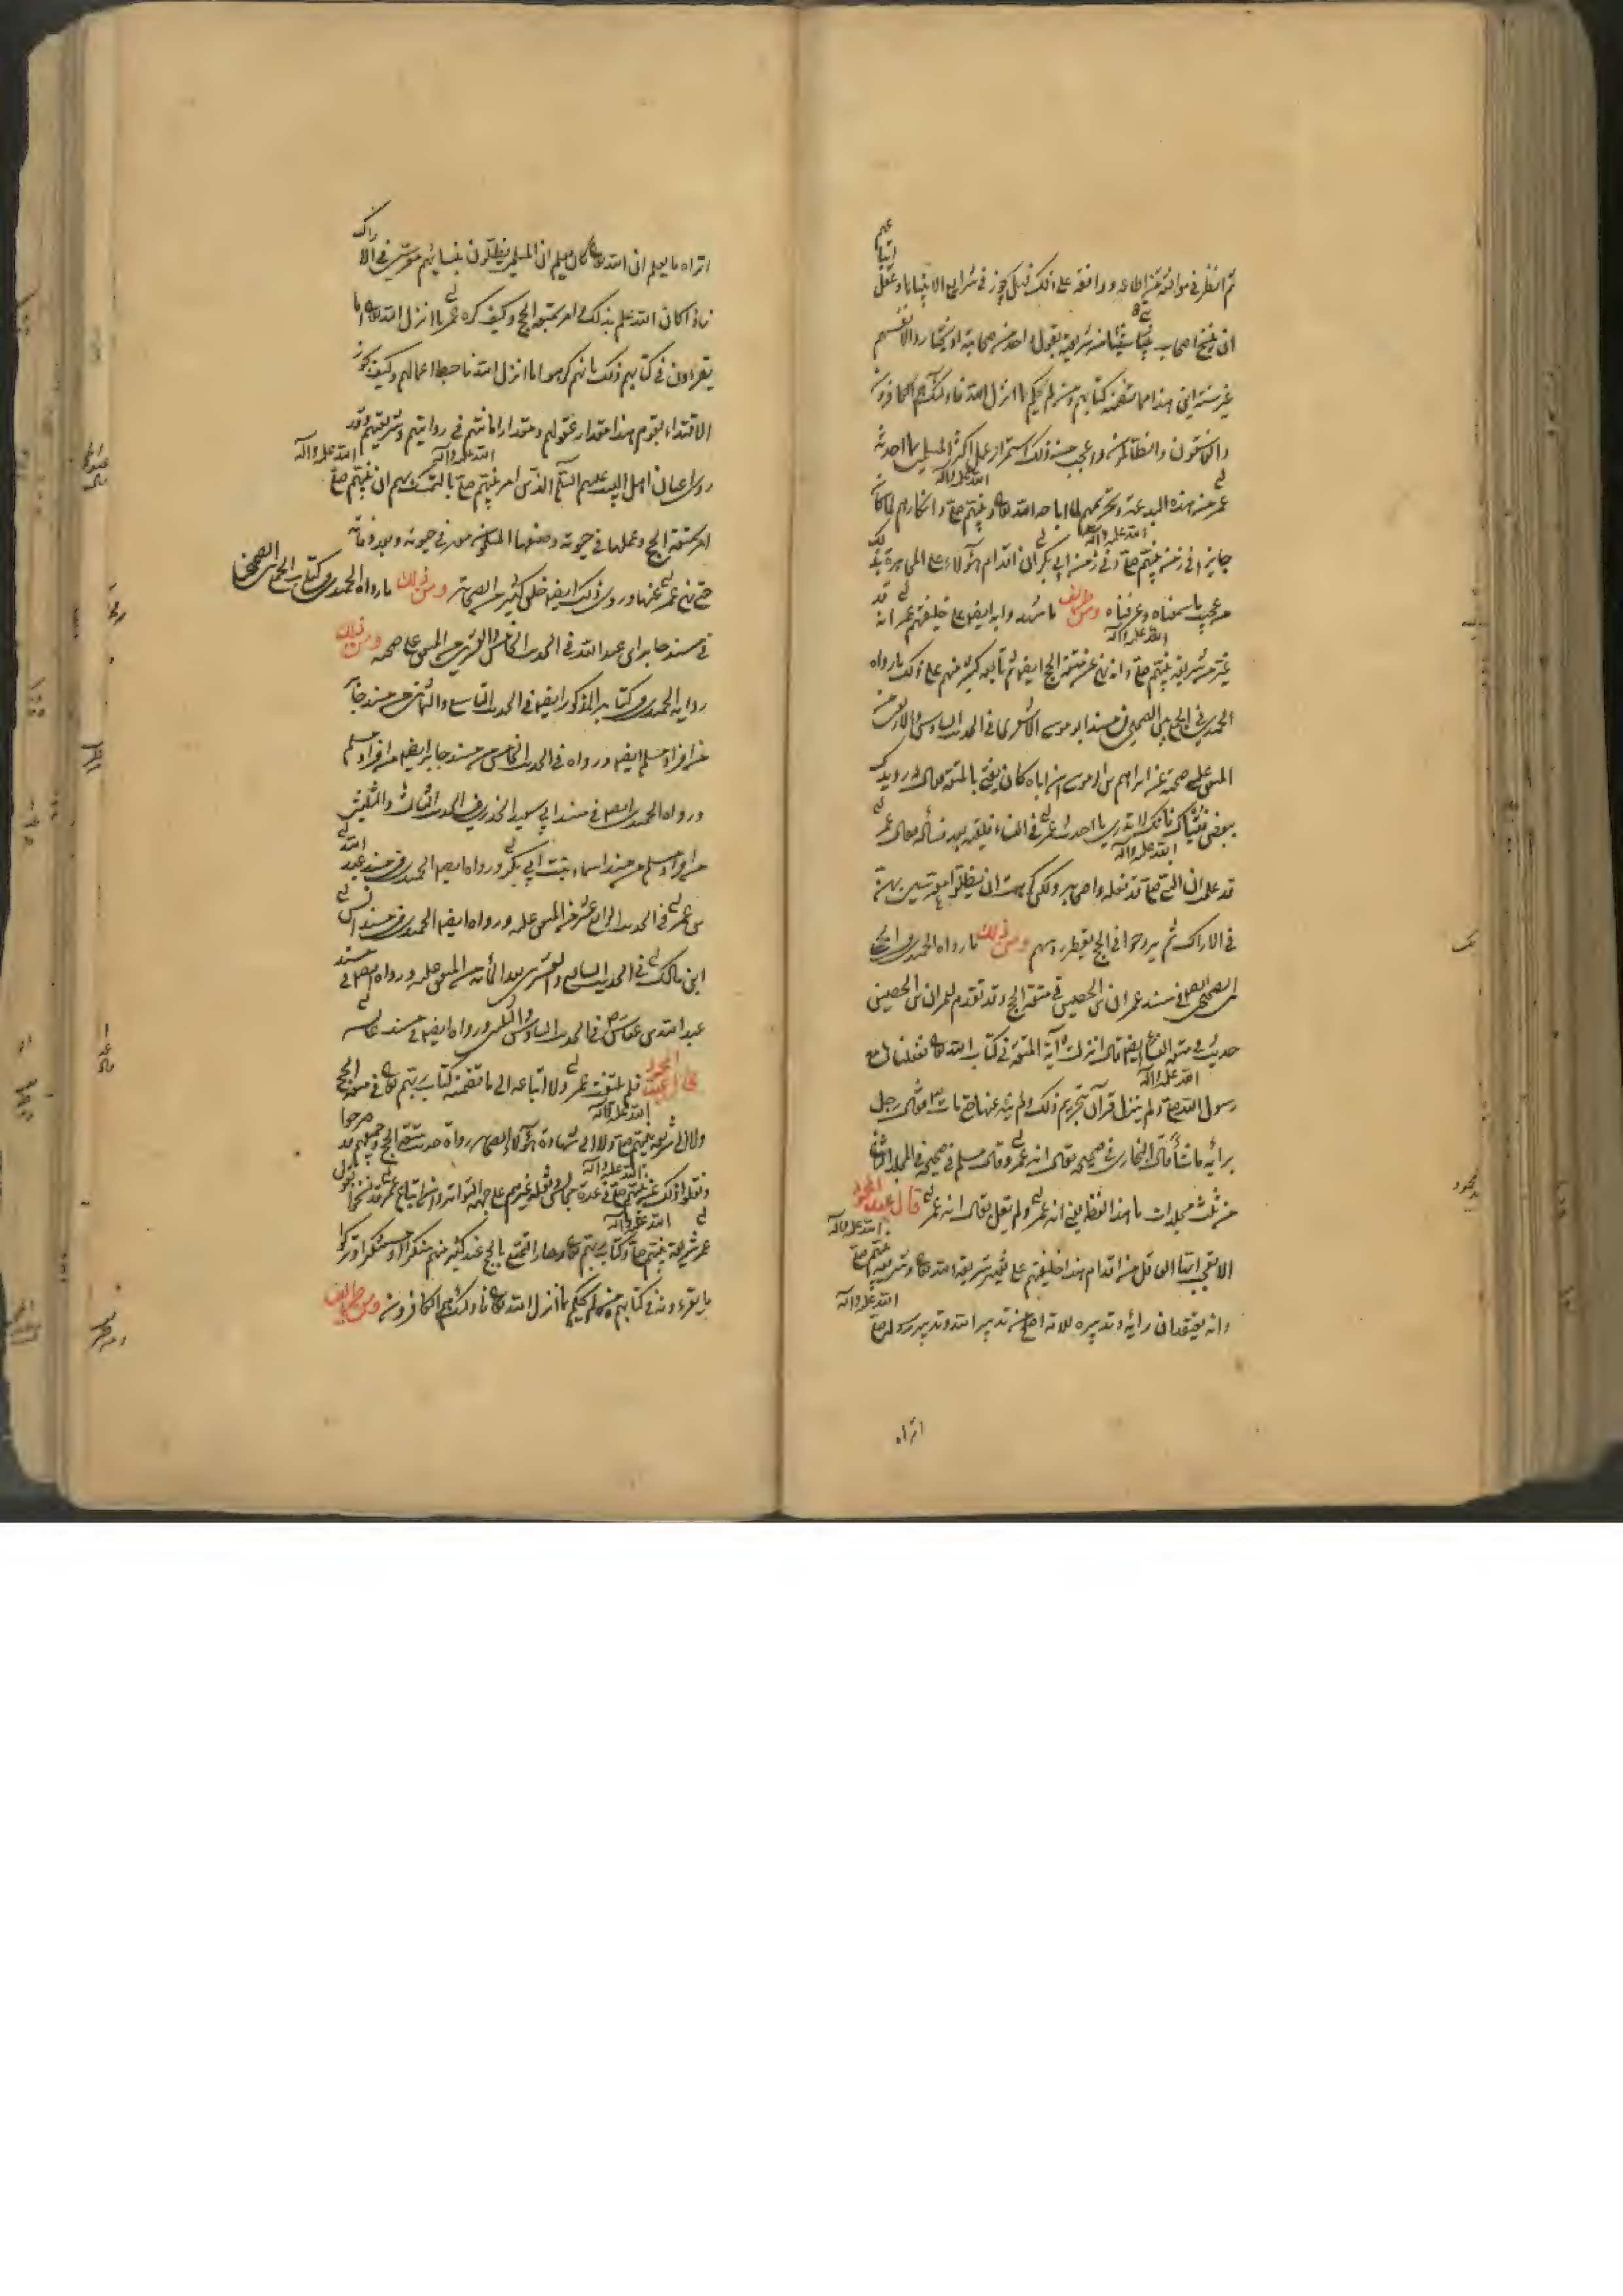 ثم انظر في موافقة من اطاعه ووافقه على ذلك فهل يجوز في شرايع الانبياء او عقل
ان ينسخ اصحاب نبي شيئا من شريعته بقول واحد من صحابته او يختاروا لانفسهم
غير سنة نبيهم هذا مما تضمنه كتابهم ومن لم يحكم بما انزل الله فاولئك هم الكافرون
والفاسقون والظالمون واعجب من ذلك استمرار عمل اكثر المسلمين بما احدثه
عمر من هذه البدعة وتحريمهم لما اباحه الله تعالى ونبيهم صلى الله عليه وآله وانكارهم لما كان
جايزا في زمن نبيهم صلى الله عليه وآله وفي زمن ابي بكر ان اقدام هؤلاء على المجاهرة بذلك
من عجيب ما سمعناه وعرفناه ومن طرايف ما شهدوا به ايضا على خليفتهم عمر انه قد
غير من شريعة نبيهم صلى الله عليه وآله وانه نهى عن متعة الحج ايضا ثم تابعه كثير منهم على ذلك ما رواه
الحميدي في الجمع بين الصحيحين في مسند ابو موسى الاشعري في الحديث السادس والاربعين من
المتفق على صحته عن ابراهيم بن ابي موسى ان اباه كان يفتي بالمتعة فقال له رجل رويدك
ببعض فتياك فانك لا تدري ما احدث عمر في النساء فلقيه بعد فسأله فقال عمر
قد علمت ان النبي صلى الله عليه وآله قد فعله واصحابه ولكني كرهت ان يظلوا معرسين بهن
في الاراك ثم يروحوا في الحج يقطر رؤسهم ومن ذلك ما رواه الحميدي في الجمع
بين الصحيحين ايضا في مسند عمران بن الحصين في متعة الحج وقد تقدم لعمران بن الحصين
حديث في متعة النساء ايضا قال انزلت آية المتعة في كتاب الله تعالى ففعلناها مع
رسول الله صلى الله عليه وآله ولم ينزل قرآن بتحريم ذلك ولم ينه عنها حتى مات فقال رجل
برأيه ما شاء قال البخاري في صحيحه يقال انه عمر وقال مسلم في صحيحه في المجلد الثاني
من ثلث مجلدات ما هذا لفظه يعني انه عمر ولم يقل يقال انه عمر قال عبد المحمود
الا تعجب ايها العاقل من اقدام هذا خليفتهم على تغيير شريعة الله تعالى وشريعة نبيهم صلى الله عليه وآله
وانه يعتقد ان رأيه وتدبيره للامة اصلح من تدبير الله وتدبير رسوله صلى الله عليه وآله
اتراه
اتراه ما يعلم ان الله تعالى كان يعلم ان المسلمين يظلون بنسائهم معرسين في الاراك
فاذا كان الله علم بذلك لم امر بمتعة الحج وكيف كره عمر ما انزل الله تعالى اما
يقرءون في كتابهم ذلك بانهم كرهوا ما انزل الله فاحبط اعمالهم وكيف يجوز
الاقتداء بقوم هذا مقدار عقولهم ومقدار امانتهم في روايتهم وشريعتهم وقد
روى اعيان اهل البيت عليهم السلام الذين امر نبيهم صلى الله عليه وآله بالتمسك بهم ان نبيهم صلى الله عليه وآله
امر بمتعة الحج وعملها في حيوته وفعلها المسلمون في حيوته وبعد وفاته
حتى نهى عمر عنها وروى ذلك ايضا خلق كثير من الصحابة ومن ذلك ما رواه الحميدي في كتاب الجمع بين الصحيحين
في مسند جابر بن عبد الله في الحديث الخامس والعشرين من المتفق على صحته ومن ذلك
رواية الحميدي في كتابه المذكور ايضا في الحديث التاسع والثمانين من مسند جابر
من افراد مسلم ايضا ورواه في الحديث الخامس من مسند جابر ايضا من افراد مسلم
ورواه الحميدي ايضا في مسند ابي سعيد الخدري في الحديث الثالث والثلثين
من افراد مسلم من مسند اسماء بنت ابي بكر ورواه ايضا الحميدي في مسند عبد الله
بن عمر في الحديث الرابع عشر من المتفق عليه ورواه ايضا الحميدي في مسند انس
ابن مالك في الحديث السابع والعشرين بعد المائة من المتفق عليه ورواه ايضا في مسند
عبد الله بن عباس في الحديث السادس والثلثين ورواه ايضا في مسند عايشه
قال عبد المحمود فلم يلتفت عمر ولا اتباعه الى ما تضمنه كتاب ربهم تعالى في متعة الحج
ولا الى شريعة نبيهم صلى الله عليه وآله ولا الى شهادة هؤلاء الصحابة رواة حديث متعة الحج وجميعهم قد صرحوا
ونقلوا ذلك عن نبيهم صلى الله عليه وآله في عدة مجالس ونقله غيرهم على جهة التواتر وان اتباع عمر قد نسخوا بقول
عمر شريعة نبيهم صلى الله عليه وآله وكتاب ربهم تعالى وصار التمتع بالحج عند كثير منهم منكرا او مستنكرا وتركوا
ما يقرءونه في كتابهم من لم يحكم بما انزل الله تعالى فاولئك هم الكافرون ومن طرايف